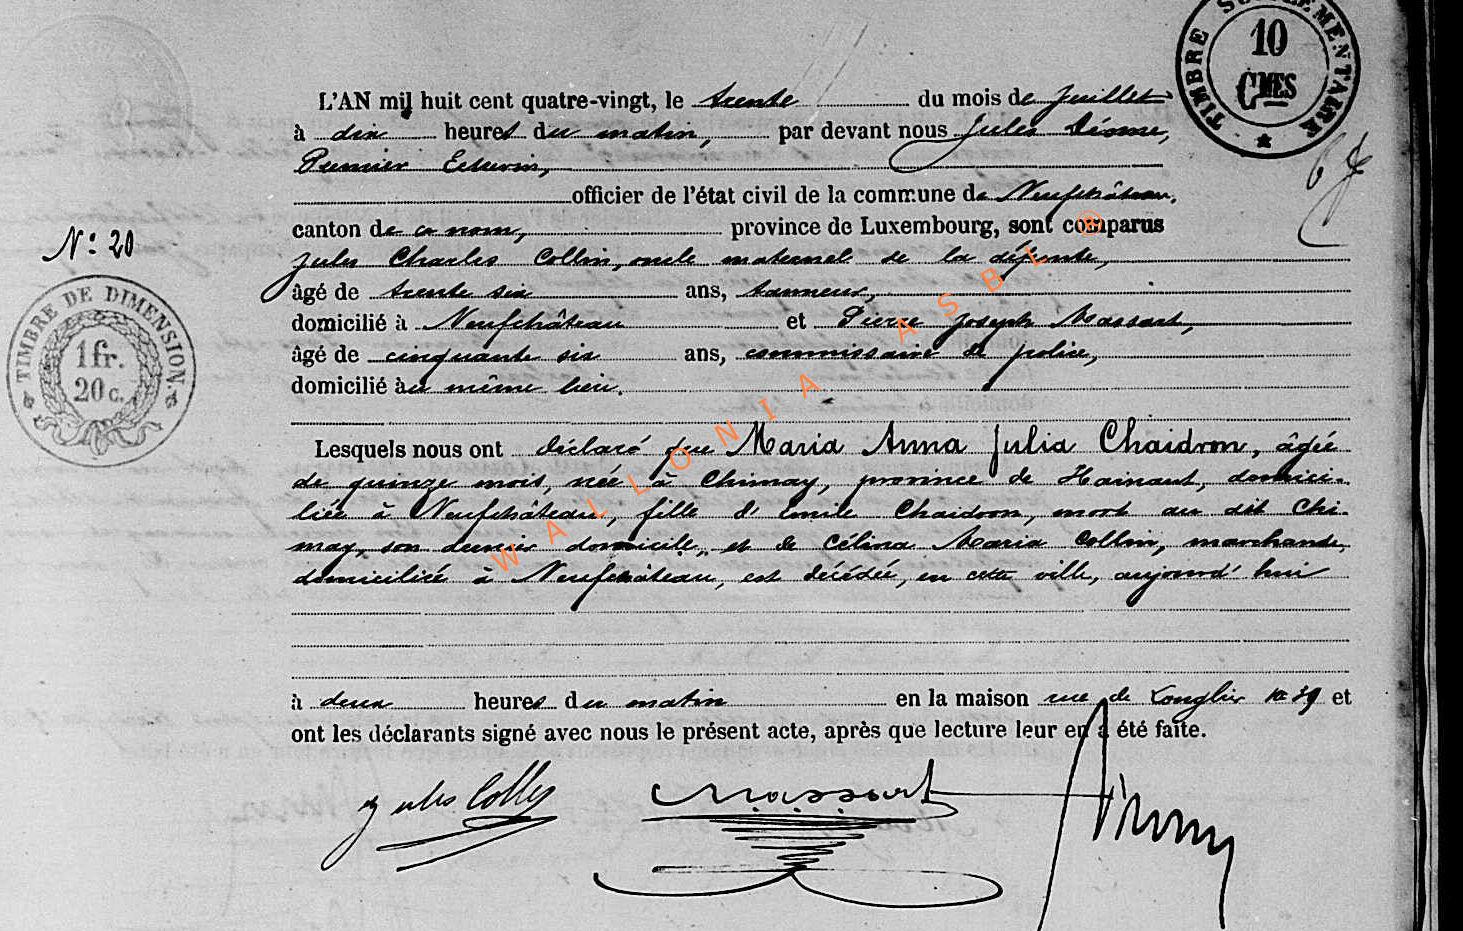 TIMBRE SUPPLÉMENTAIRE
10
CMES
L'AN mil huit cent quatre-vingt, le trente du mois de Juillet
à dix heures du matin, par devant nous Jules
Premier Echevin,
officier de l'état civil de la commune de Neufchâteau,
canton de ce nom, province de Luxembourg, sont comparus
N° 20
Jules Charles Collin, oncle maternel de la défunte,
âgé de trente six ans, tanneur,
TIMBRE DE DIMENSION.
1 fr.
20 c.
domicilié à Neufchâteau et Pierre Joseph Massart,
âgé de cinquante six ans, commissaire de police,
domicilié au même lieu.
Lesquels nous ont déclaré que Maria Anna Julia Chaidron, âgée
de quinze mois, née à Chimay, province de Hainaut, domici-
liée à Neufchâteau, fille d'Emile Chaidron, mort au dit Chi-
may, son dernier domicile, et de Célina Maria Collin, marchande,
domiciliée à Neufchâteau, est décédée, en cette ville, aujourd'hui
à deux heures du matin en la maison rue de Longlier no 39 et
ont les déclarants signé avec nous le présent acte, après que lecture leur en a été faite.
Jules Collin Massart
WALLONIA ASBL ®